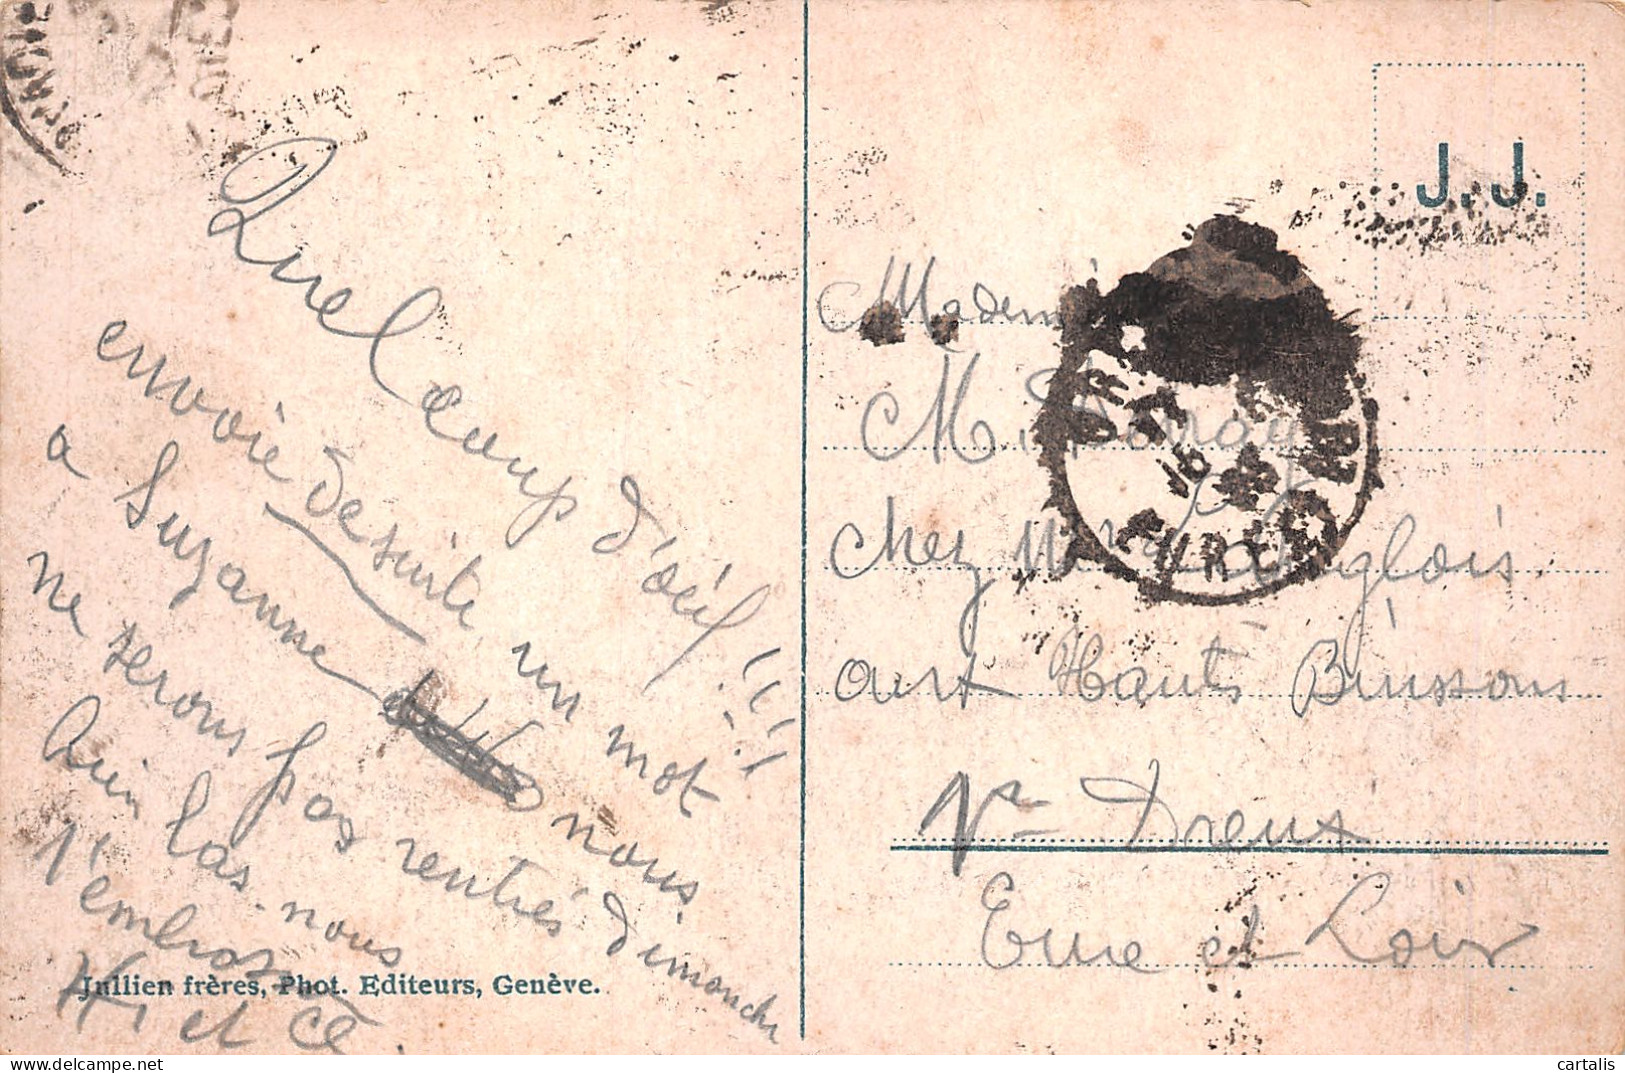 Quel coup d'œil !!!
envoie de suite un mot
a Suzanne nous
ne serons pas rentrés dimanche
las. nous
t'embras
et
Jullien frères, Phot. Editeurs, Genève.
J. J.
Mademoi
M.
chez Mme Langlois
aux Hauts Buissons
Pr Dreux
Eure et Loir
cartalis
delcampe.net